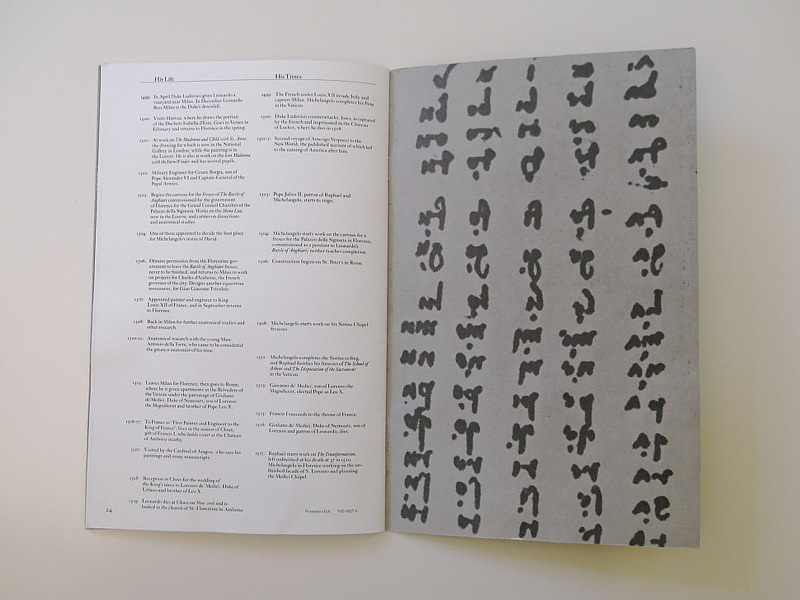 His Life
1499: In April Duke Ludovico gives Leonardo a
vineyard near Milan. In December Leonardo
flees Milan at the Duke's downfall.
1500: Visits Mantua, where he draws the portrait
of the Duchess Isabella d'Este. Goes to Venice in
February and returns to Florence in the spring.
1501: At work on The Madonna and Child with St. Anne,
the drawing for which is now in the National
Gallery in London, while the painting is in
the Louvre. He is also at work on the lost Madonna
with the Yarn-Winder and has several pupils.
1502: Military Engineer for Cesare Borgia, son of
Pope Alexander VI and Captain-General of the
Papal Armies.
1503: Begins the cartoon for the fresco of The Battle of
Anghiari commissioned by the government
of Florence for the Grand Council Chamber of the
Palazzo della Signoria. Works on the Mona Lisa,
now in the Louvre, and carries on dissections
and anatomical studies.
1504: One of those appointed to decide the best place
for Michelangelo's statue of David.
1506: Obtains permission from the Florentine gov-
ernment to leave the Battle of Anghiari fresco,
never to be finished, and returns to Milan to work
on projects for Charles d'Amboise, the French
governor of the city. Designs another equestrian
monument, for Gian Giacomo Trivulzio.
1507: Appointed painter and engineer to King
Louis XII of France, and in September returns
to Florence.
1508: Back in Milan for further anatomical studies and
other research.
1510-11: Anatomical research with the young Marc
Antonio della Torre, who came to be considered
the greatest anatomist of his time.
1513: Leaves Milan for Florence, then goes to Rome,
where he is given apartments in the Belvedere of
the Vatican under the patronage of Giuliano
de'Medici, Duke of Nemours, son of Lorenzo
the Magnificent and brother of Pope Leo X.
1516-17: To France as "First Painter and Engineer to the
King of France"; lives in the manor of Cloux,
gift of Francis I, who holds court at the Chateau
of Amboise nearby.
1517: Visited by the Cardinal of Aragon, who sees his
paintings and many manuscripts.
1518: Reception at Cloux for the wedding of
the King's niece to Lorenzo de'Medici, Duke of
Urbino and brother of Leo X.
1519: Leonardo dies at Cloux on May 2nd and is
buried in the church of St. Florentine in Amboise.
24
His Times
1499: The French under Louis XII invade Italy and
capture Milan. Michelangelo completes his Pieta
in the Vatican.
1500: Duke Ludovico counterattacks, loses, is captured
by the French and imprisoned in the Chateau
of Loches, where he dies in 1508.
1501-2: Second voyage of Amerigo Vespucci to the
New World, the published account of which led
to the naming of America after him.
1503: Pope Julius II, patron of Raphael and
Michelangelo, starts to reign.
1504: Michelangelo starts work on the cartoon for a
fresco for the Palazzo della Signoria in Florence,
commissioned as a pendant to Leonardo's
Battle of Anghiari; neither reaches completion.
1506: Construction begins on St. Peter's in Rome.
1508: Michelangelo starts work on his Sistine Chapel
frescoes.
1512: Michelangelo completes the Sistine ceiling,
and Raphael finishes his frescoes of The School of
Athens and The Disputation of the Sacrament
in the Vatican.
1513: Giovanni de' Medici, son of Lorenzo the
Magnificent, elected Pope as Leo X.
1515: Francis I succeeds to the throne of France.
1516: Giuliano de' Medici, Duke of Nemours, son of
Lorenzo and patron of Leonardo, dies.
1517: Raphael starts work on The Transformation,
left unfinished at his death at 37 in 1520.
Michelangelo in Florence working on the un-
finished facade of S. Lorenzo and planning
the Medici Chapel.
Printed in USA